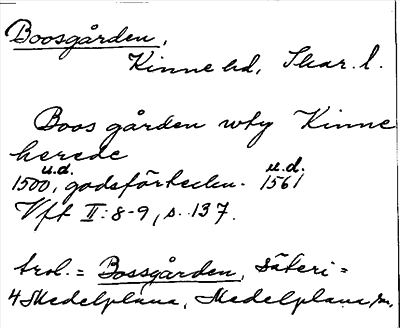 Boosgården,
Kinne hd, Skar. l.
Boos gården wty Kinne
herede
u.d. u.d.
1500, godsförteckn. 1561
Vft II: 8-9, s. 137.
trol. = Bossgården, säteri =
4 Medelplana, Medelplana sn.